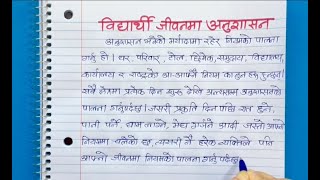 विद्यार्थी जीवनमा अनुशासन
अनुशासन भनेको मर्यादामा रहेर नियमको पालना
गर्नु हो । घर, परिवार, टोल, छिमेक, समुदाय, विद्यालय,
कार्यालय र राष्ट्रको आ-आफ्नै नियम कानुन हुन्छन् ।
सबै नेलमा प्रत्येक दिन सुरु देखि अन्त्यसम्म अनुशासनको
पालना गर्नुपर्दछ । जसरी प्रकृति दिन पछि रात हुने,
पानी पर्ने, घाम लाग्ने, मेघ गर्जने आदी जस्तो आफ्नै
नियममा चलेको छ, त्यसरी नै हरेक व्यक्तिले पनि
आफ्नो जीवनमा नियमको पालना गर्नु पर्दछ